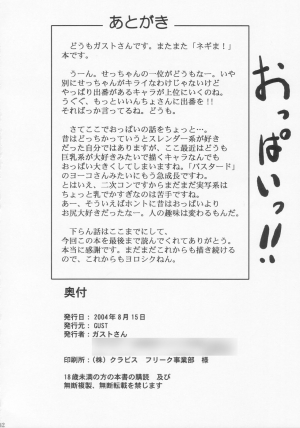 あとがき
どうもガストさんです。またまた「ネギま!」
本です。
うーん。せっちゃんの一位がどうもなー。いや
別にせっちゃんがキライなわけじゃないけど
やっぱり出番があるキャラが上位にいくのね。
うぐぐ、もっといいんちょさんに出番を!!
そればっか言ってるね。どうも。
さてここでおっぱいの話をちょっと…。
昔はどっちかっていうとスレンダー系が好き
だった自分ではありますが、ここ最近はどうも
巨乳系が大好きみたいで描くキャラなんでも
おっぱい大きくしてしまいますね。「バスタード」
のヨーコさんみたいにもう急成長ですわ。
とはいえ、二次コンですからまだまだ実写系は
ちょっと乳でかすぎなのは苦手ですね。
あー、そういえばホントに昔はおっぱいより
お尻大好きだったなー。人の趣味は変わるもんだ。
下らん話はここまでにして、
今回この本を最後まで読んでくれてありがとう。
本当に感謝です。まだまだこれからも描き続ける
ので、これからもヨロシクねん。
おっぱいっ!!
奥付
発行日:2004年8月15日
発行元:GUST
発行者:ガストさん
印刷所:(株)クラピス フリーク事業部 様
18歳未満の方の本書の購読 及び
無断複製、無断転載を禁じます